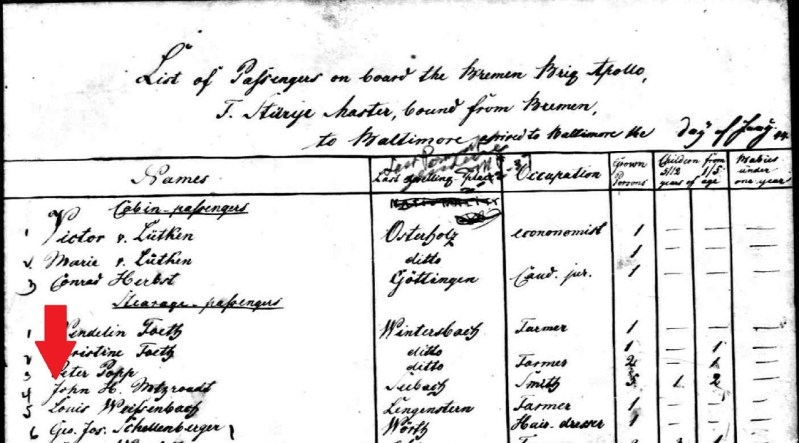 List of Passengers on board the Bremen Brig Apollo,
T. Stürje Master, bound from Bremen,
to Baltimore arrived to Baltimore the day of Jany
Names Last dwelling place Occupation Grown Persons Children from 5/12 1/5 years of age Babies under one year
Cabin-passengers
1 Victor v. Lütken Osterholz econonomist 1 — — —
2 Marie v. Lütken ditto 1 — — —
3 Conrad Herbst Göttingen Cand. jur. 1 — — —
Steerage-passengers
1 Wendelin Foeth Wintersbach Farmer 1 — — —
2 Christine Foeth ditto 1 — 1
3 Peter Popp ditto Farmer 2 — 1
4 John H. Seebach Smith 3 1 2
5 Louis Weissenbach Lengenstern Farmer 1 — — —
6 Geo. Jos. Schellenberger Wörth Hair-dresser 1 — — —